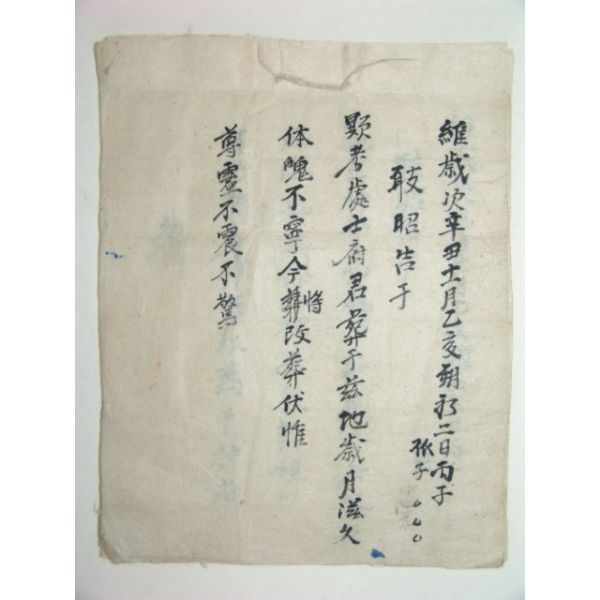 維歲次辛丑十一月乙亥朔初二日丙子
孤子
敢昭告于
顯考處士府君葬于茲地歲月滋久
体魄不寧今將改葬伏惟
尊靈不震不驚